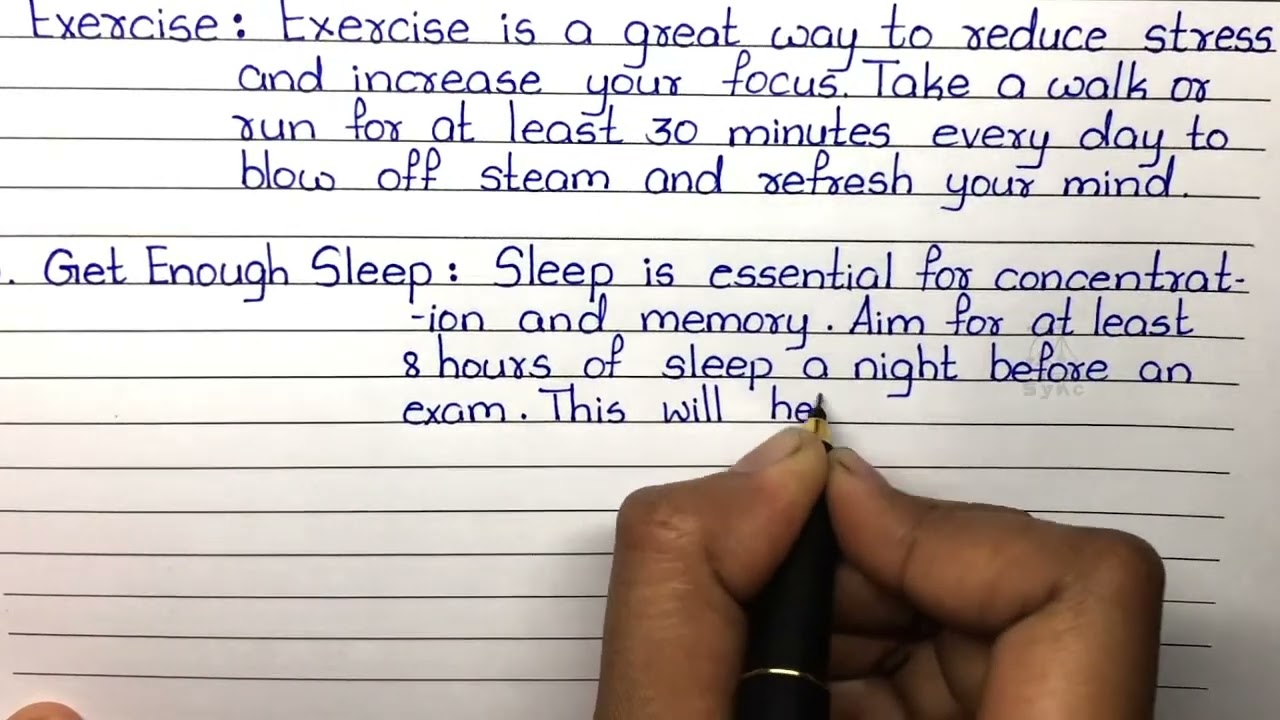 Exercise: Exercise is a great way to reduce stress
and increase your focus. Take a walk or
run for at least 30 minutes every day to
blow off steam and refresh your mind.
. Get Enough Sleep: Sleep is essential for concentrat-
-ion and memory. Aim for at least
8 hours of sleep a night before an
exam. This will he